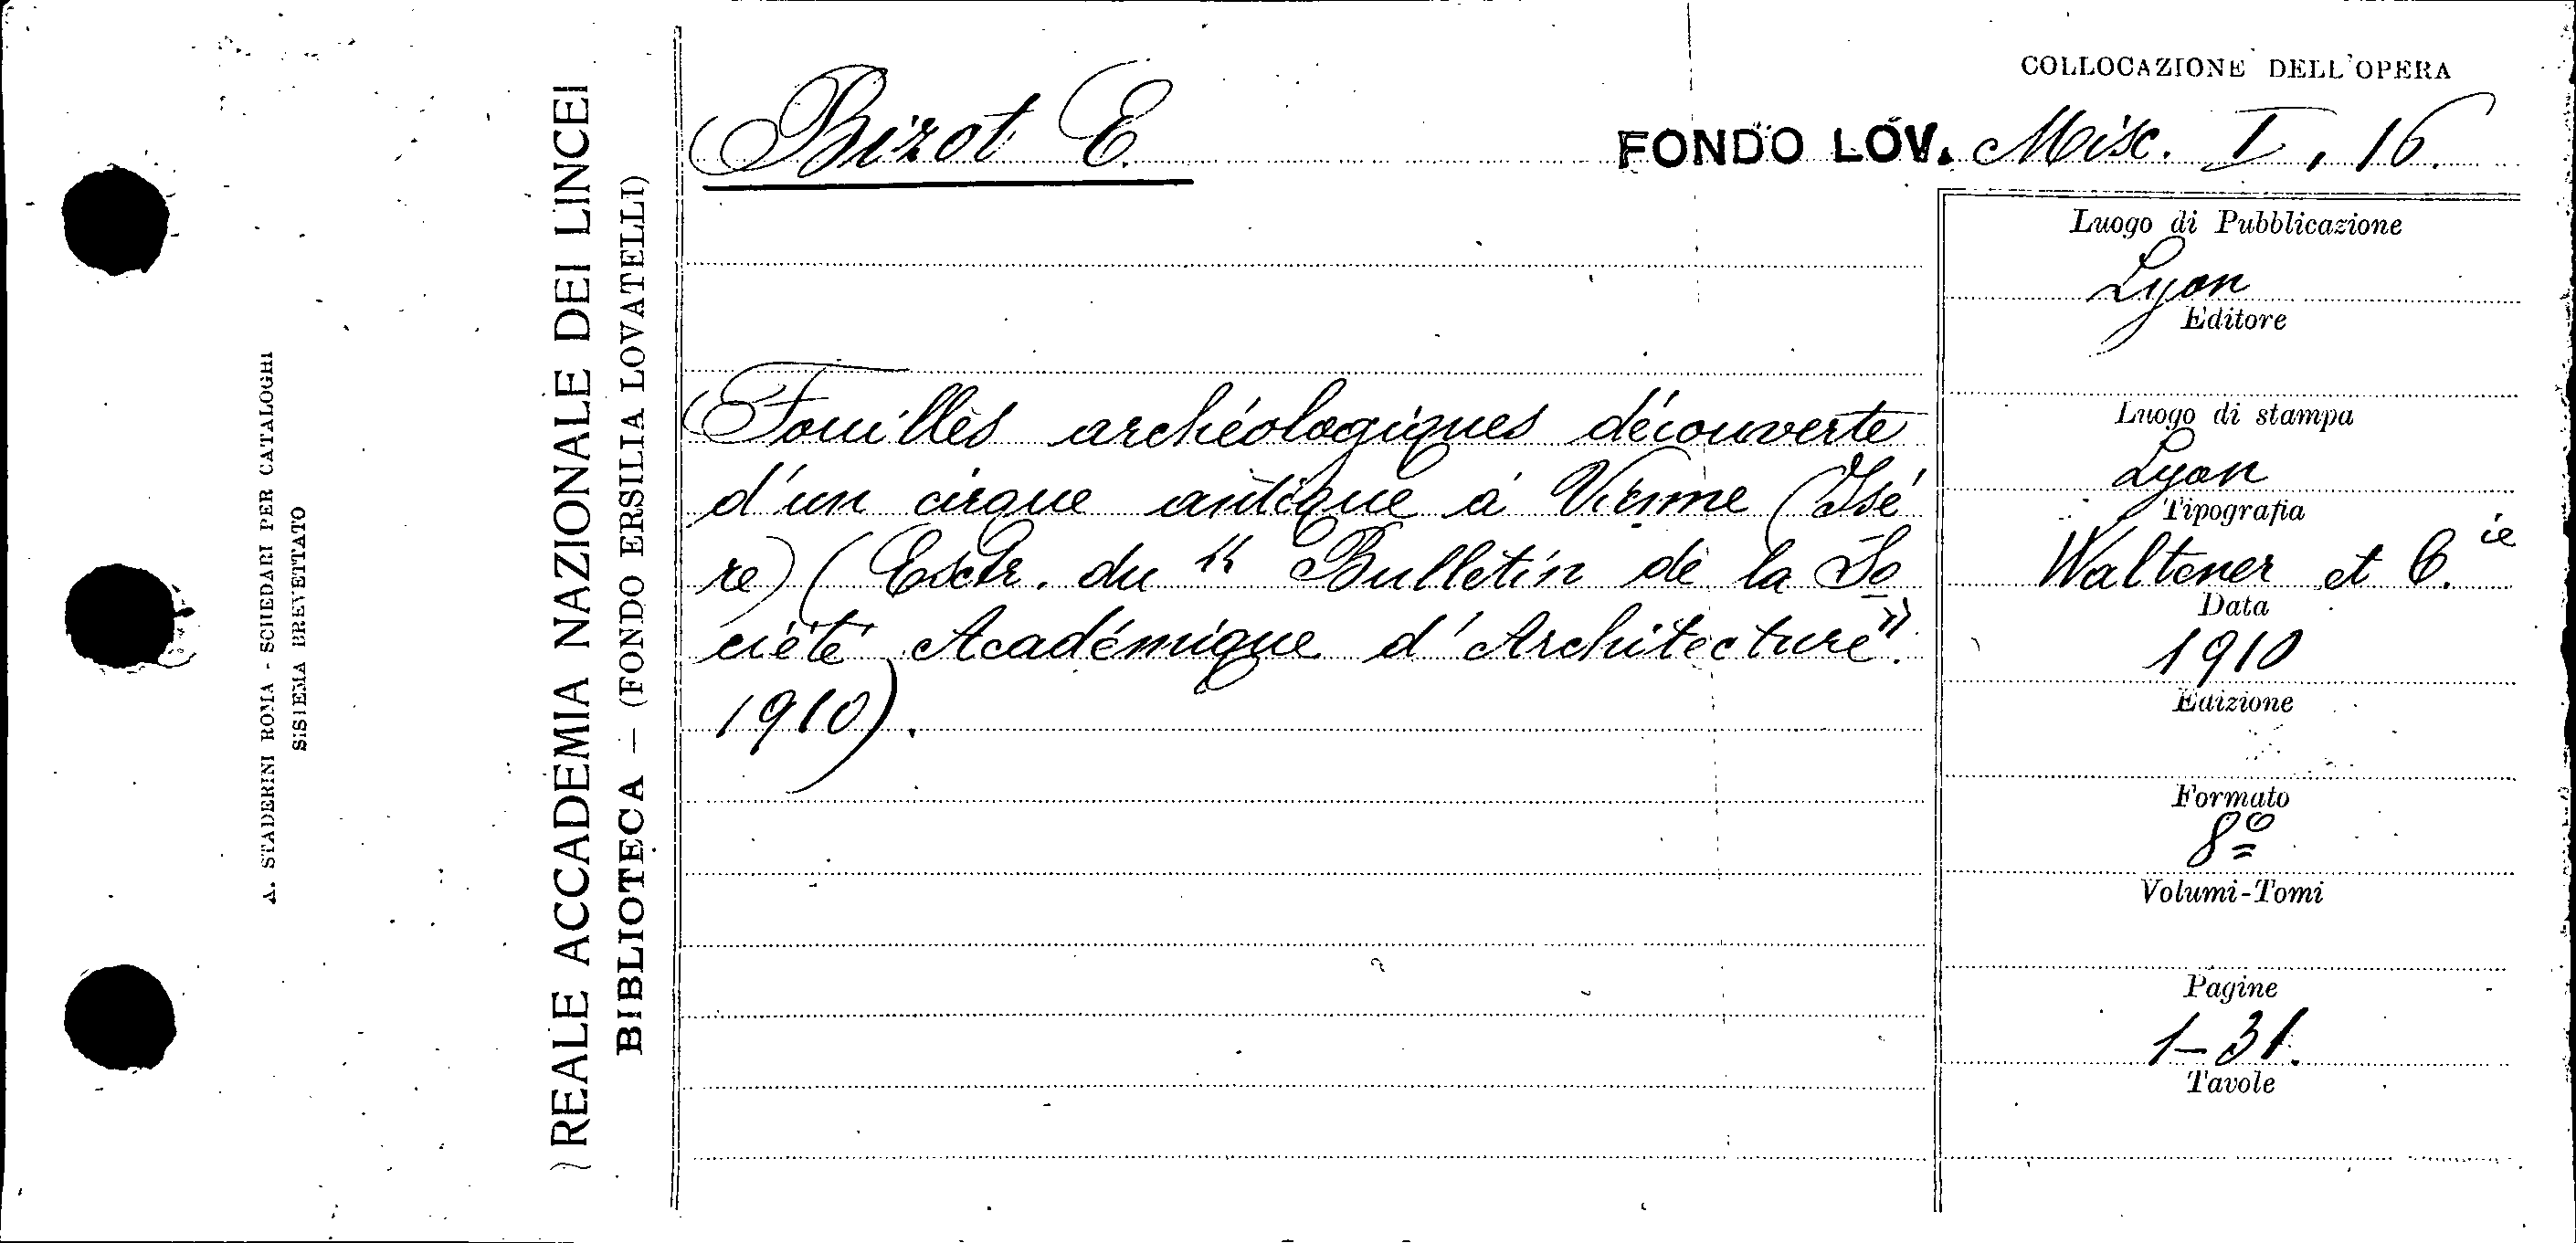 COLLOCAZIONE DELL'OPERA
Bizot E.
FONDO LOV. Misc. I, 16.
Fouilles archéologiques découverte
d'un cirque antique à Vienne (Isé
re) (Extr. du "Bulletin de la So
ciété Académique d'Architecture".
1910).
Luogo di Pubblicazione
Lyon
Editore
Luogo di stampa
Lyon
Tipografia
Waltener et C.ie
Data
1910
Edizione
Formato
8º
Volumi-Tomi
Pagine
1-31.
Tavole
REALE ACCADEMIA NAZIONALE DEI LINCEI
BIBLIOTECA — (FONDO ERSILIA LOVATELLI)
A. STADERINI ROMA - SCHEDARI PER CATALOGHI
SISTEMA BREVETTATO